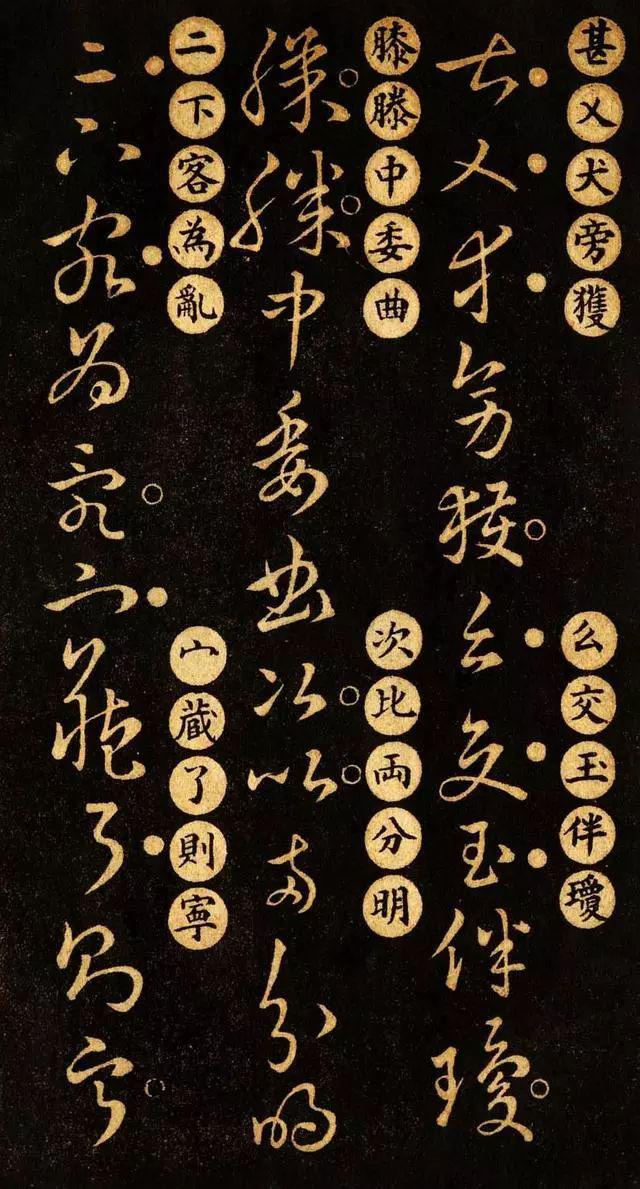 甚乂犬旁獲
么交玉伴瓊
膝滕中委曲
次比両分明
二下客為亂
宀藏了則寧